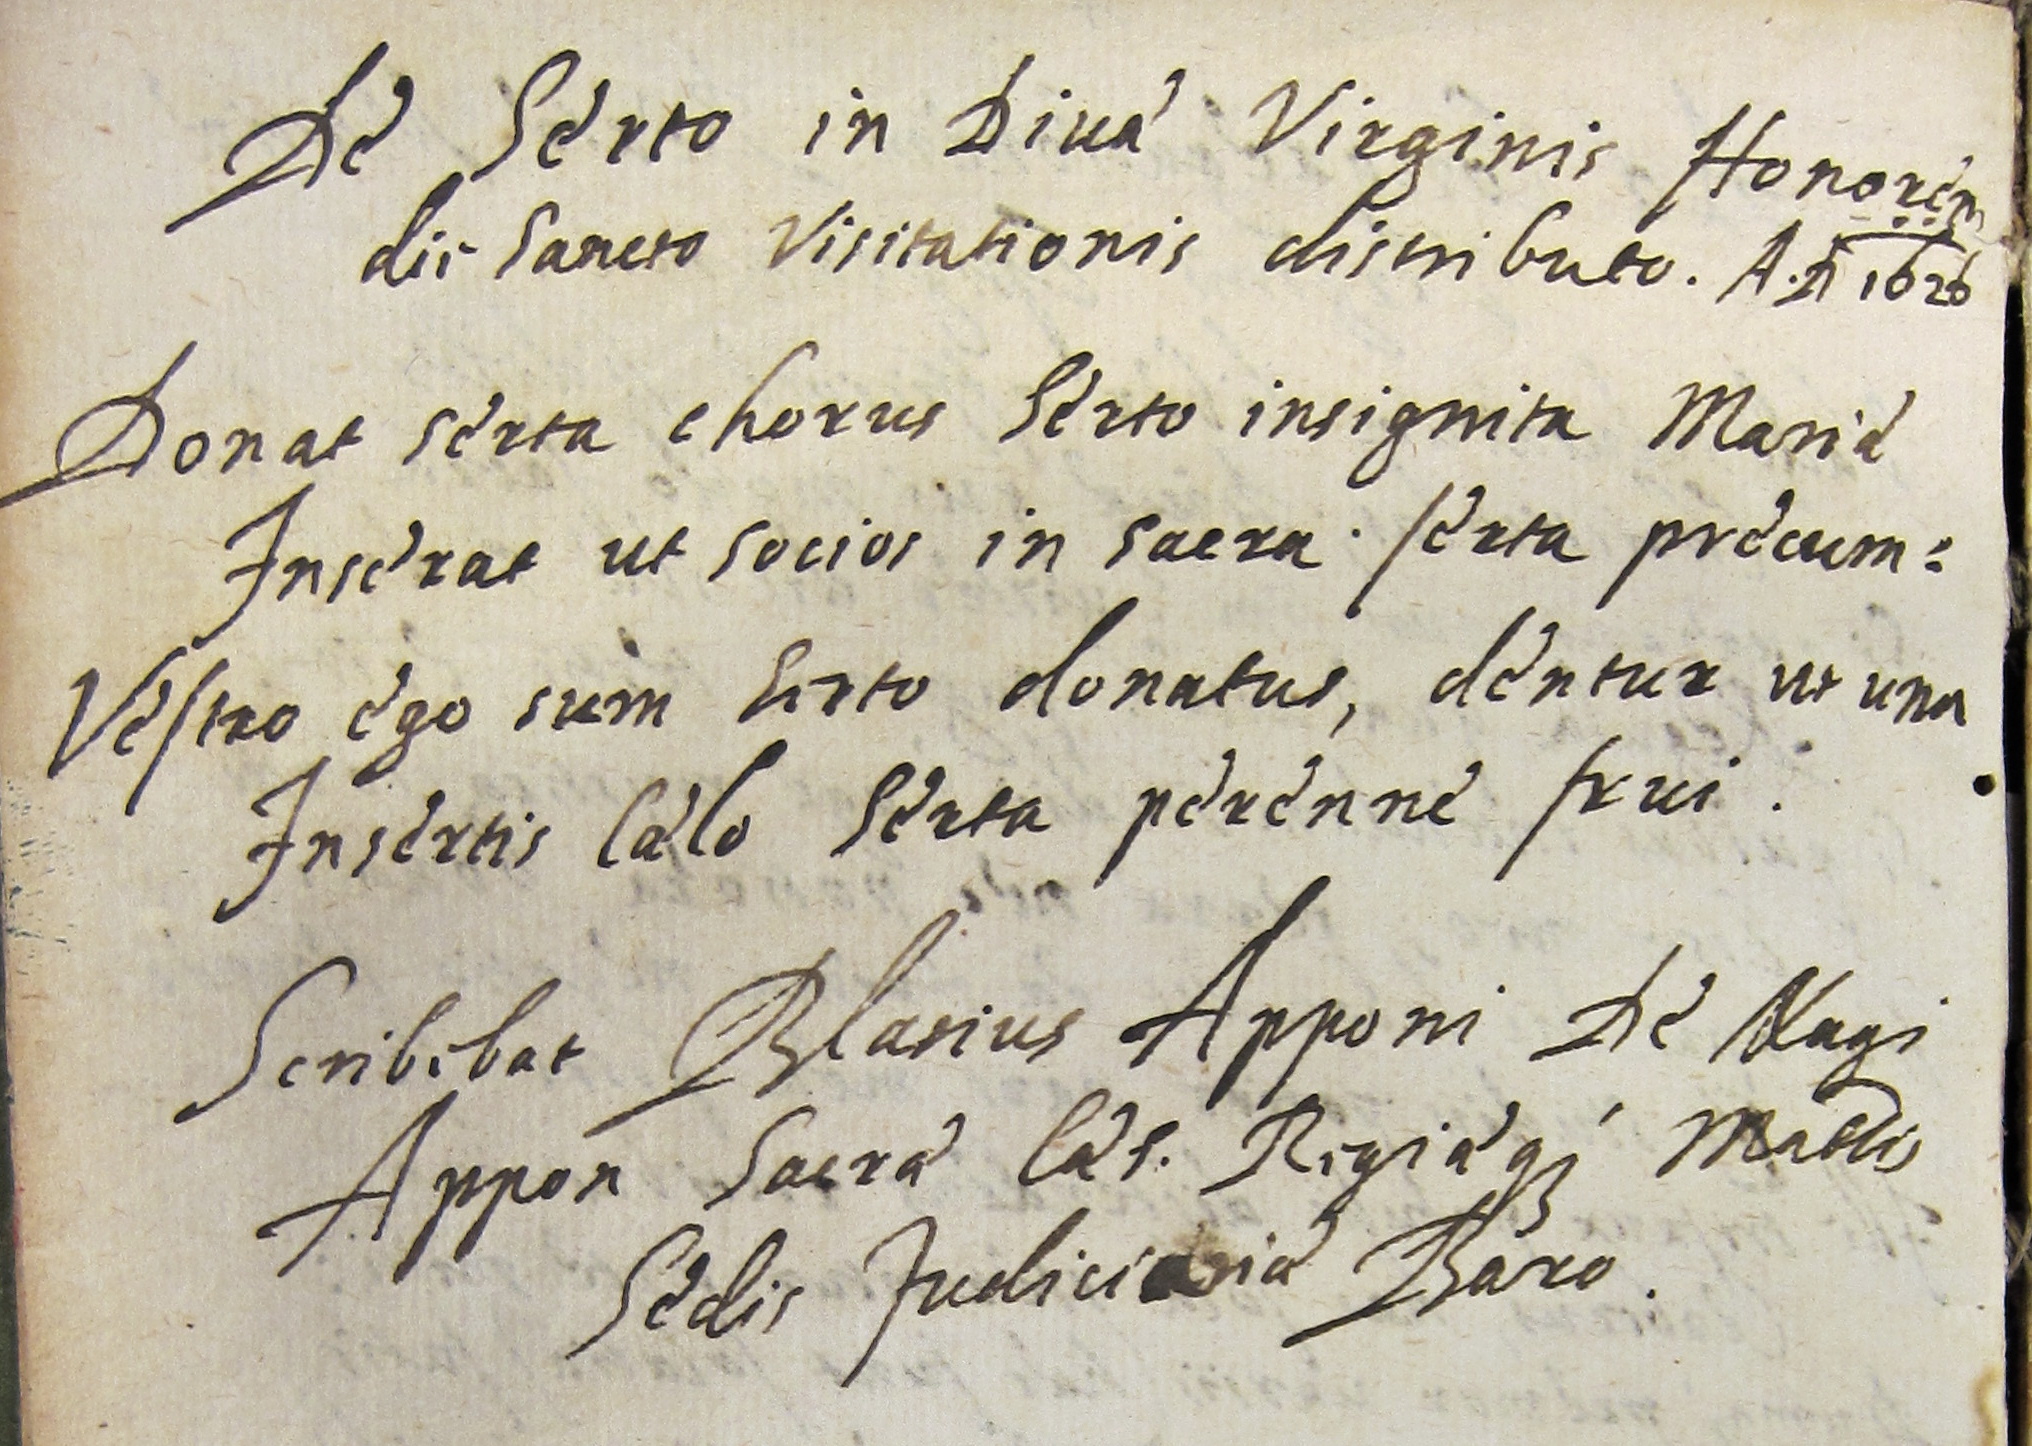 De Serto in Diuæ Virginis Honorem
die Sancto Visitationis distributo. A. D 1626
Donat serta chorus Serto insignita Mariæ
Inserat ut socios in sacra serta precum:
Vestro ego sum Serto donatus, dentur ut una
Insertis Cælo Serta perenne frui.
Scribebat Blasius Apponi De Nagi
Appon Sacræ Cæs. Regiæq3 Mattis
Sedis Judiciariæ Baro.